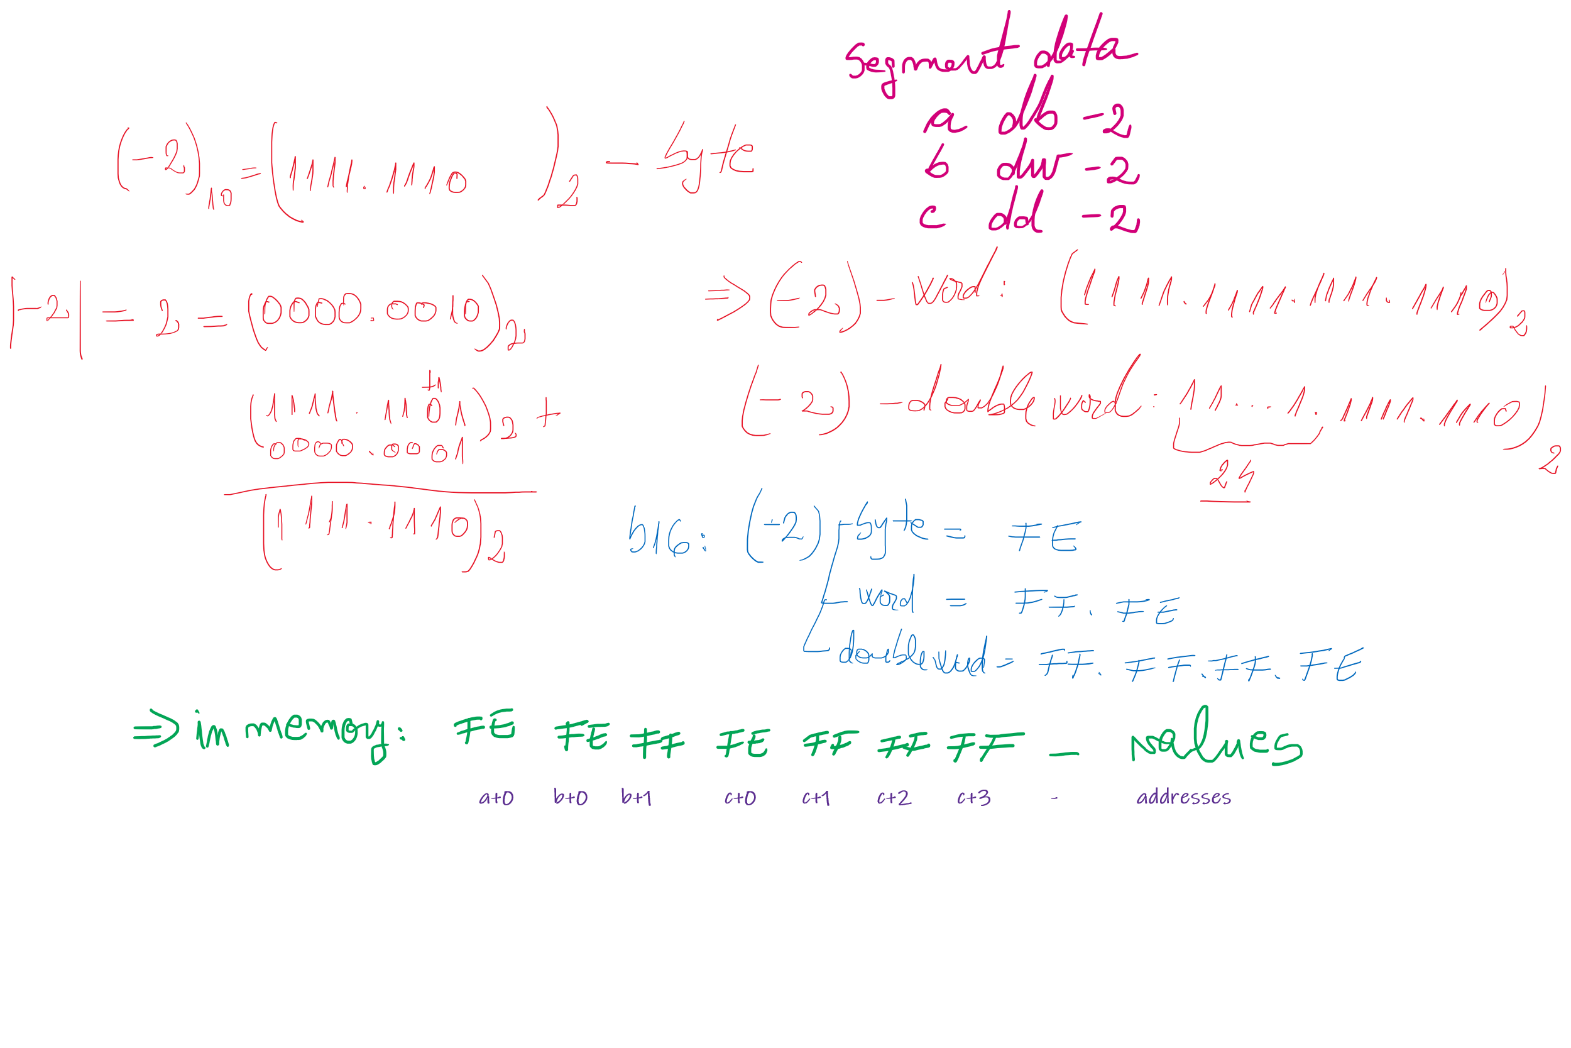 Segment data
a db -2
b dw -2
c dd -2
(-2)10 = (1111.1110 )2 - byte
|-2| = 2 = (0000.0010)2
+1
(1111.1101)2 +
0000.0001
(1111.1110)2
=> (-2) - word: (1111.1111.1111.1110)2
(-2) - doubleword: 11...1.1111.1110)2
24
b16: (-2) - byte = FE
- word = FF.FE
- doubleword = FF.FF.FF.FE
=> in memory: FE FE FF FE FF FF FF - values
a+0 b+0 b+1 c+0 c+1 c+2 c+3 - addresses